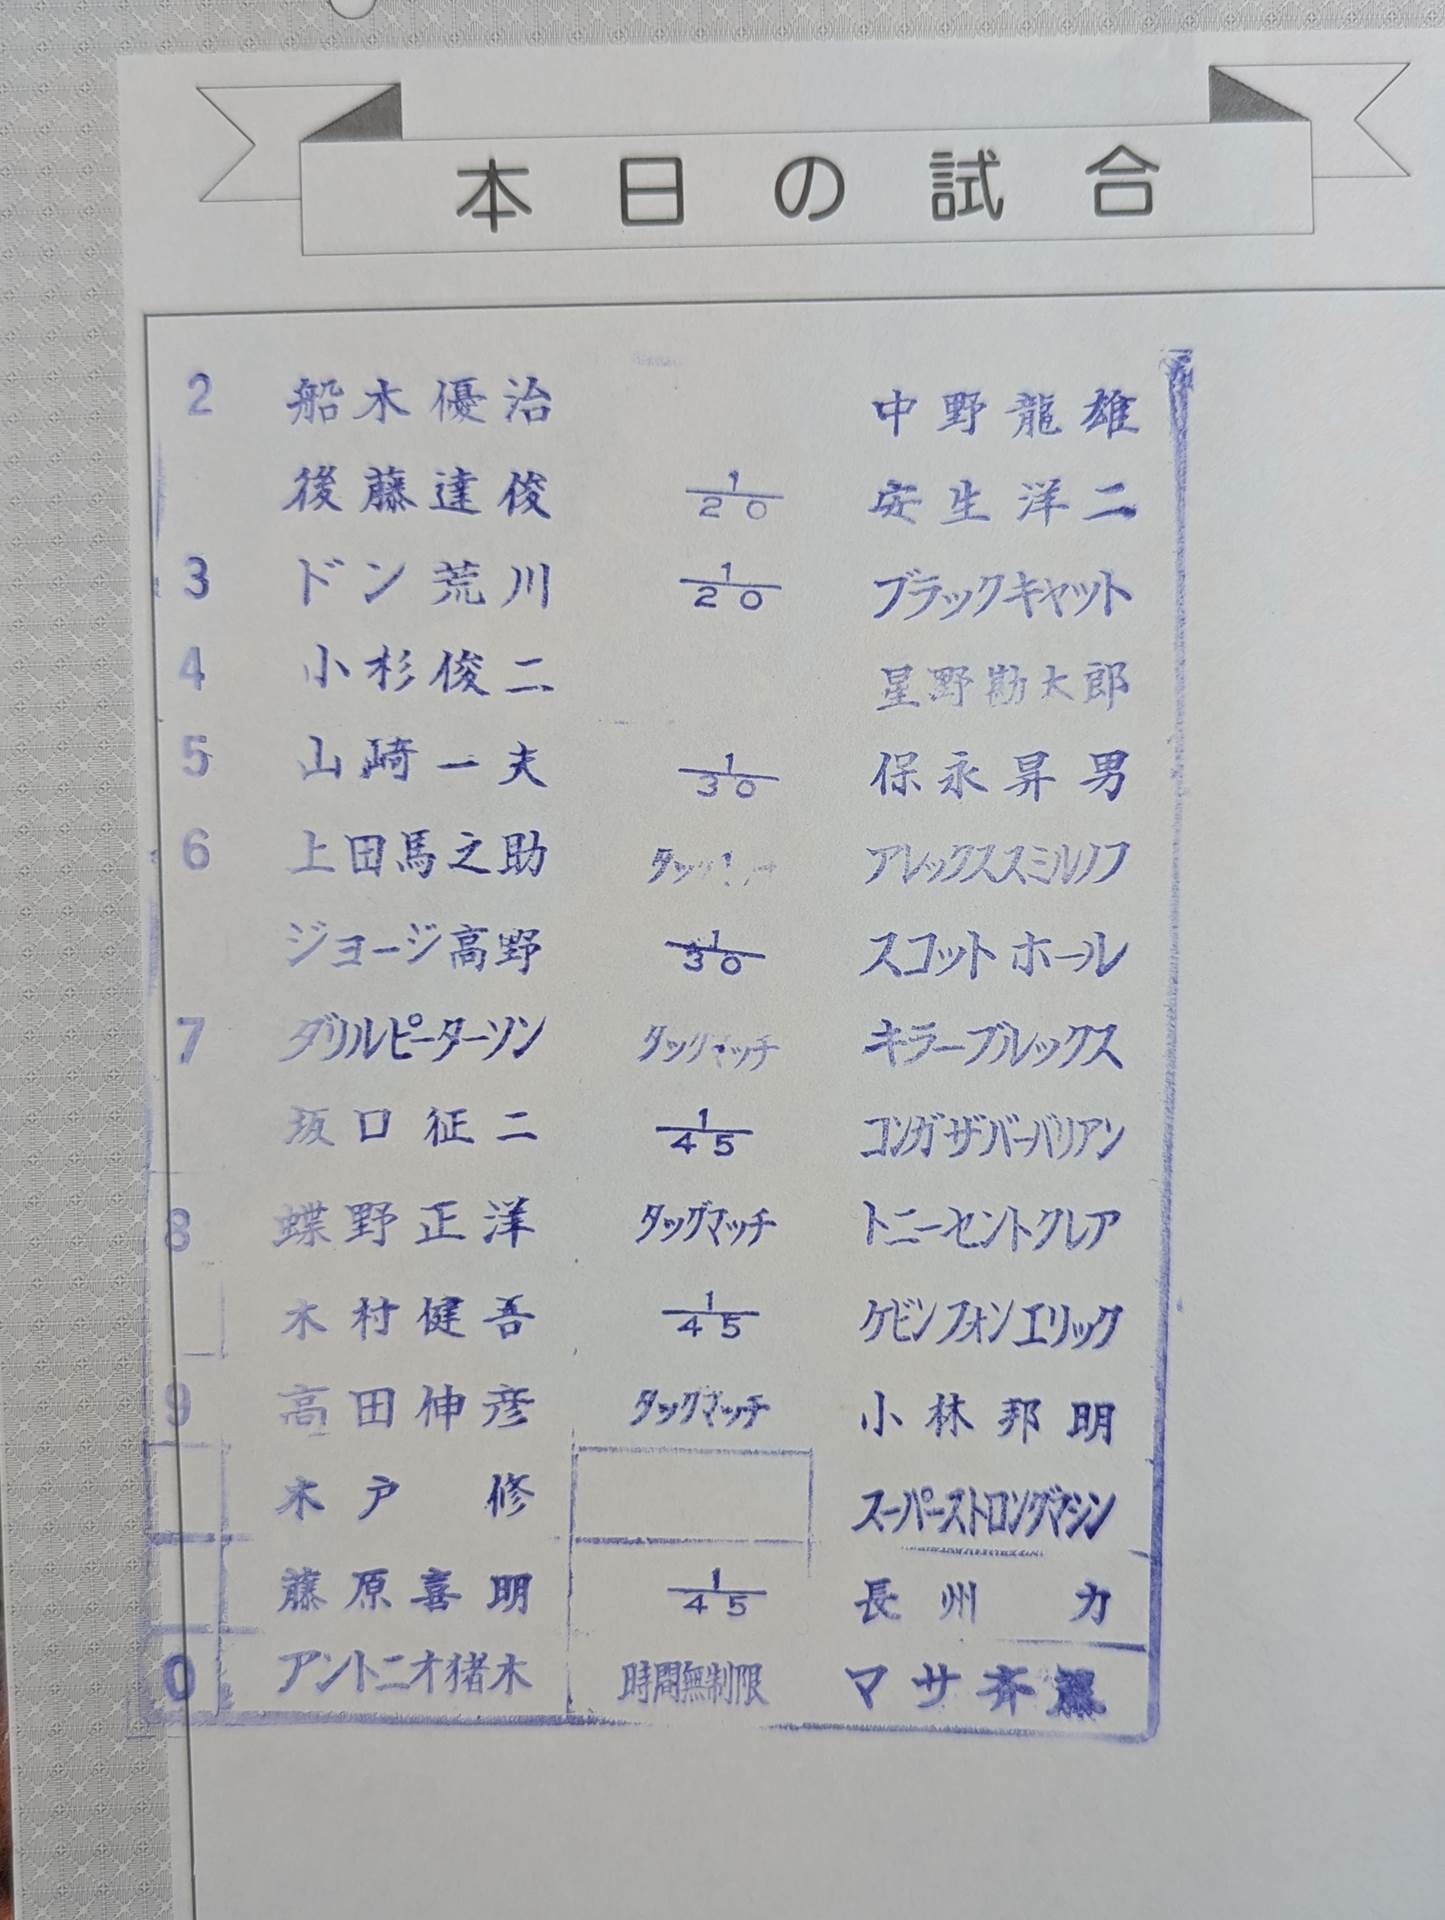 本日の試合
2 船木優治 中野龍雄
後藤達俊 1/20 安生洋二
3 ドン荒川 1/20 ブラックキャット
4 小杉俊二 星野勘太郎
5 山崎一夫 1/30 保永昇男
6 上田馬之助 タッグマッチ アレックススミルノフ
ジョージ高野 1/30 スコット ホール
7 ダリルピーターソン タッグマッチ キラーブルックス
坂口征二 1/45 コンガザバーバリアン
8 蝶野正洋 タッグマッチ トニーセントクレア
木村健吾 1/45 ケビンフォンエリック
9 高田伸彦 タッグマッチ 小林邦明
木戸 修 スーパーストロングマシン
藤原喜明 1/45 長州 力
0 アントニオ猪木 時間無制限 マサ斉藤